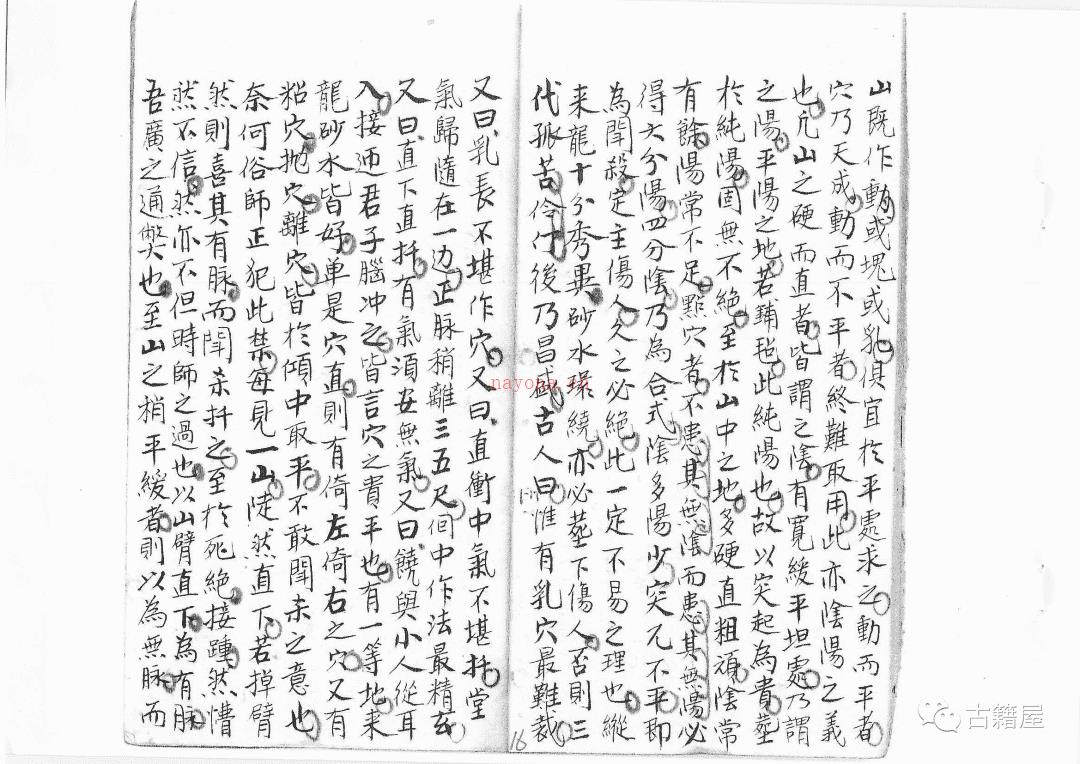 山既作動或塊或乳俱宜於平處求之動而平者
穴乃天成動而不平者終難取用此亦陰陽之義
也凢山之硬而直者皆謂之陰有寬緩平坦處乃謂
之陽平陽之地若鋪毡此純陽也故以突起為貴塟
於純陽固無不絕至於山中之地多硬直粗頑陰常
有餘陽常不足點穴者不患其無陰而患其無陽必
得六分陽四分陰乃為合式陰多陽少突兀不平即
為鬥殺定主傷人久之必絕此一定不易之理也縱
来龍十分秀異砂水環繞亦必塟下傷人否則三
代孤苦伶仃後乃昌盛古人曰惟有乳穴最難裁
又曰乳長不堪作穴又曰直衝中氣不堪扦堂
氣歸隨在一边正脉稍離三五尺個中作法最精玄
又曰直下直扦有氣須安無氣又曰饒與小人從耳
入接迎君子腦冲之皆言穴之貴平也有一等地来
龍砂水皆好单是穴直則有倚左倚右之穴又有
粘穴抛穴離穴皆於傾中取平不敢鬥杀之意也
奈何俗師正犯此禁每見一山陡然直下若掉臂
然則喜其有脉而鬥杀扦之至於死絕接踵然懵
然不信然亦不但時師之過也以山臂直下為有脉
吾廣之通獘也至山之稍平緩者則以為無脉而
16
nayona.cn
古籍屋